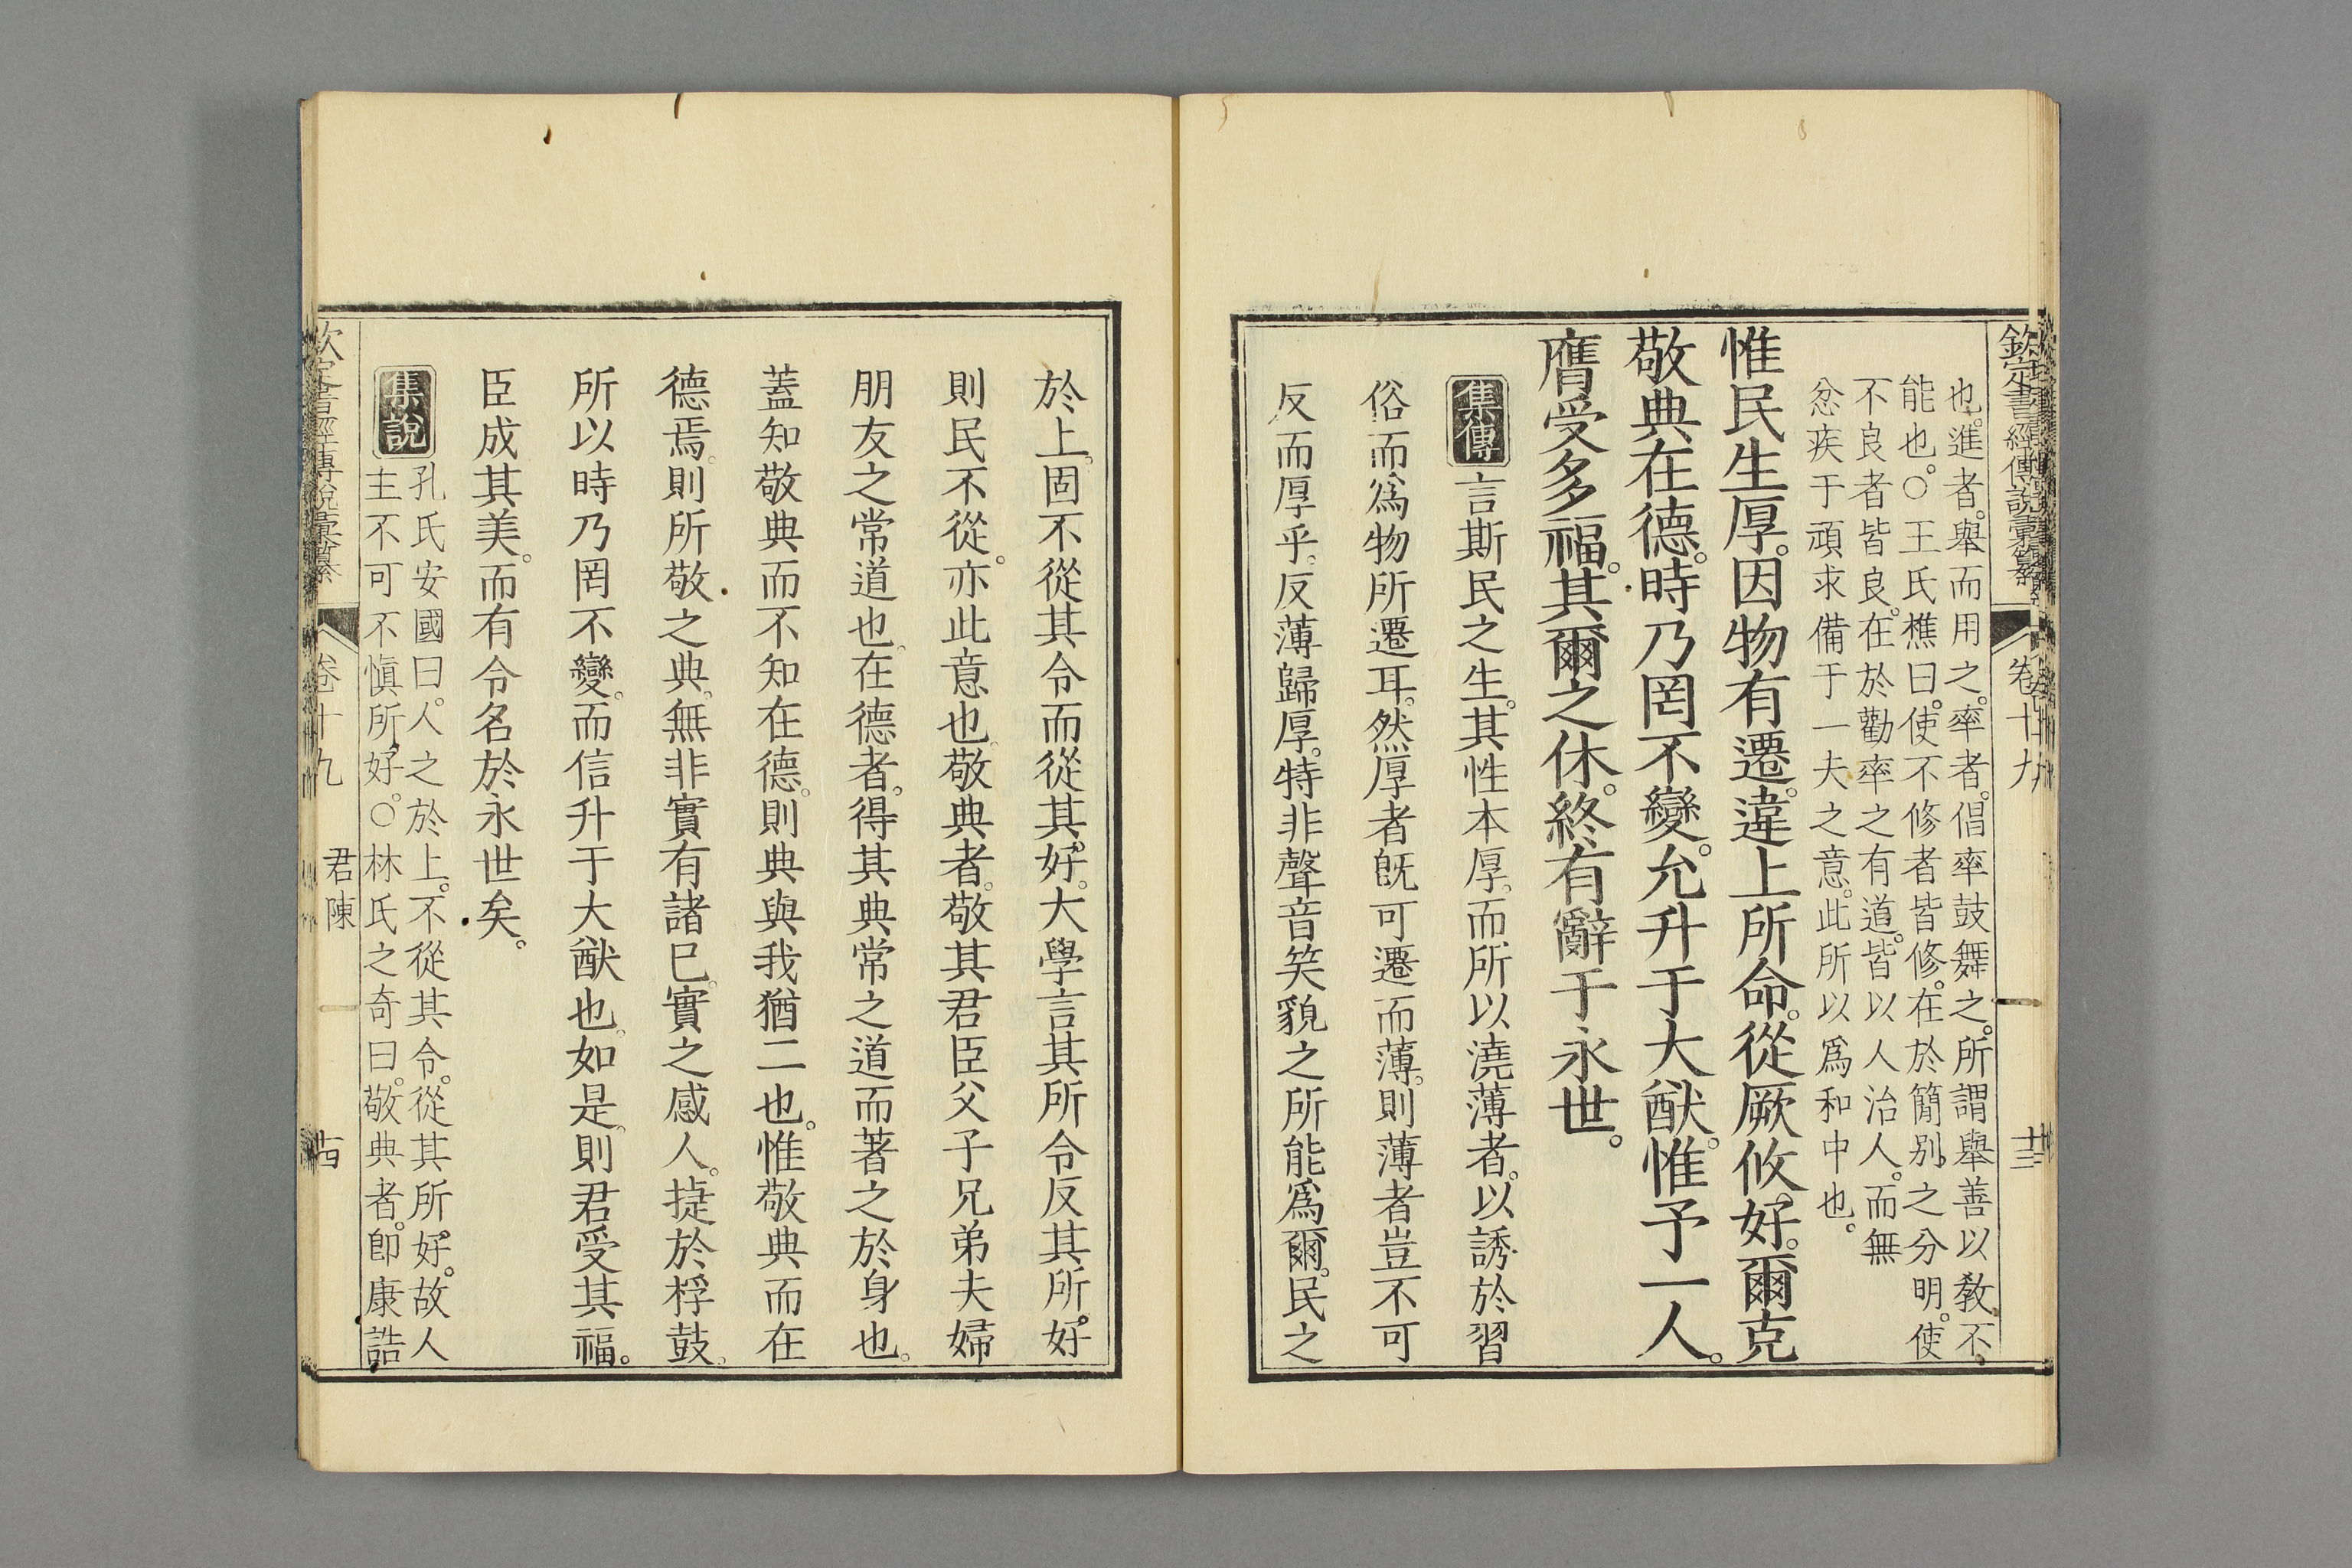 欽定書經傳說彙纂 卷十九 十三
也。進者。舉而用之。率者。倡率鼓舞之。所謂舉善以教不
能也。○王氏樵曰。使不修者皆修。在於簡別之分明。使
不良者皆良。在於勸率之有道。皆以人治人。而無
忿疾于頑求備于一夫之意。此所以爲和中也。
惟民生厚。因物有遷。違上所命。從厥攸好。爾克
敬典在德。時乃罔不變。允升于大猷。惟予一人。
膺受多福。其爾之休。終有辭于永世。
集傳 言斯民之生。其性本厚。而所以澆薄者。以誘於習
俗而爲物所遷耳。然厚者旣可遷而薄。則薄者豈不可
反而厚乎。反薄歸厚。特非聲音笑貌之所能爲爾。民之
於上。固不從其令而從其好。大學言其所令反其所好
則民不從。亦此意也。敬典者。敬其君臣父子兄弟夫婦
朋友之常道也。在德者。得其典常之道而著之於身也。
蓋知敬典而不知在德。則典與我猶二也。惟敬典而在
德焉。則所敬之典。無非實有諸已。實之感人。捷於桴鼓。
所以時乃罔不變。而信升于大猷也。如是。則君受其福。
臣成其美。而有令名於永世矣。
集說 孔氏安國曰。人之於上。不從其令。從其所好。故人
主不可不愼所好。○林氏之奇曰。敬典者。卽康誥
欽定書經傳說彙纂 卷十九 君陳 十四